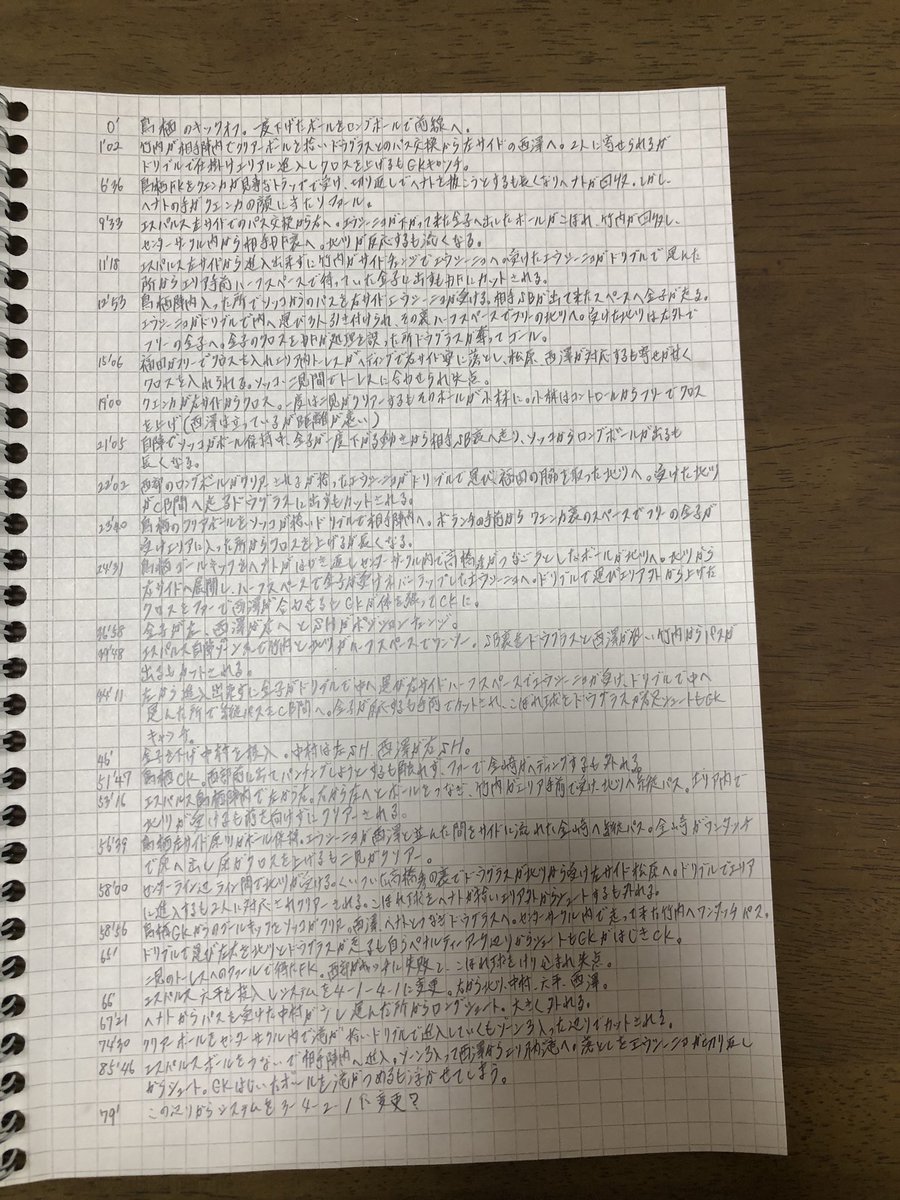 0' 鳥栖のキックオフ。一度下げたボールをロングボールで前線へ。
1'02 竹内が相手陣内でクリアーボールを拾いドウグラスとのパス交換から左サイドの西澤へ。2人に寄せられるが
ドリブルで仕掛けエリアに進入しクロスを上げるもGKキャッチ。
6'36 鳥栖FKをクエンカが見事なトラップで受け、切り返しでヘナトを抜こうとするも長くなりヘナトが回収。しかし
ヘナトの手がクエンカの顔に当たりファール。
9'33 エスパルス左サイドでのパス交換から右へ。エウシーニョが下がって来た金子へ出したボールがこぼれ、竹内が回収し、
センターサークル内から相手DF裏へ。北川が反応するも流くなる。
11'18 エスパルス左サイドから進入出来ずに竹内がサイドチェンジでエウシーニョへ。受けたエウシーニョがドリブルで運んだ
所からエリア手前ハーフスペースで待っていた金子に出すもDFにカットされる。
12'53 鳥栖陣内入った所でソッコからのパスを右サイドエウシーニョが受ける。相手SBが出て来たスペースへ金子が走る。
エウシーニョがドリブルで内へ運び3人引き付けられ、その裏ハーフスペースでフリーの北川へ。受けた北川は右外で
フリーの金子へ。金子のクロスをDFが処理を誤った所ドウグラスが奪ってゴール。
15'06 福田がフリーでクロスを入れエリア内トーレスがヘディングで左サイド奥に落とし、松原、西澤が対応するも寄せが甘く
クロスを入れられる。ソッコ・二見間でトーレスに合わせられ失点。
19'00 クエンカが左サイドからクロス。一度は二見がクリアーするもそのボールが小林に。小林はコントロールからフリーでクロス
を上げ(西澤は立っているが距離が遠い)
21'05 自陣でソッコがボール保持時、金子が一度下がる動きから相手SB裏へ走り、ソッコからロングボールが出るも
長くなる。
22'02 西部のロングボールがクリアーされるが拾ったエウシーニョがドリブルで運び福田の脇を取った北川へ。受けた北川
がCB間へ走るドウグラスに出すもカットされる。
23'40 鳥栖のクリアボールをソッコが拾いドリブルで相手陣内へ。ボランチの手前からクエンカ裏のスペースでフリーの金子が
受けエリアに入った所からクロスを上げるが長くなる。
24'31 鳥栖ゴールキックをヘナトがはね返しセンターサークル内で高橋がつなごうとしたボールが北川へ。北川から
右サイドへ展開し、ハーフスペースで金子が受けオーバーラップしたエウシーニョへ。ドリブルで運びエリア外から上げた
クロスをファーで西澤が合わせるもGKが体を張ってCKに。
36'58 金子が左、西澤が右へとSHがポジションチェンジ。
エスパルス自陣 竹内と北川がハーフスペースでワンツー。SB裏をドウグラスと西澤が狙い竹内からパスが
出るもカットされる。
44'11 左から進入出来ずに金子がドリブルで中へ運び右サイドハーフスペースでエウシーニョが受け、ドリブルで中へ
運んだ所で縦パスをCB間へ。金子が反応するも手前でカットされ、こぼれ球をドウグラスが右足シュートもGK
キャッチ。
46' 金子を下げ中村を投入。中村は左SH、西澤が右SH。
51'47 鳥栖CK。西部前に出てパンチングしようとするも触れず、ファーで金崎がヘディングするも外れる。
53'16 エスパルス鳥栖陣内で左から右。右から左へとボールをつなぎ、竹内がエリア手前で受け、北川へ縦パス。エリア内で
北川が受けるも前を向けずにクリアーされる。
56'39 鳥栖左サイド原川がボール保持。エウシーニョが西澤と並んだ間をサイドに流れた金崎へ縦パス。金崎がワンタッチ
で原へ出し原がクロスを上げるも二見がクリアー。
58'00 センターライン辺ライン間で北川が受ける。くいついた高橋秀の裏でドウグラスが北川から受け左サイド松原へ。ドリブルでエリア
に進入するも2人に対応されクリアーされる。こぼれ球をヘナトが拾いエリア外からシュートするも外れる。
58'56 鳥栖GKからのゴールキックをソッコがクリア。西澤、ヘナトとつなぎドウグラスへ。センターサークル内で走って来た竹内へワンタッチパス。
ドリブルで運び左右を北川とドウグラスが走るも自らペナルティーアーク辺りからシュートもGKがはじきCK。
65' 二見のトーレスへのファールで得たFK。西部がキャッチに失敗し、こぼれ球をけり込まれ失点。
66' エスパルス 六平を投入しシステムを4-1-4-1に変更。右から北川、中村、六平、西澤。
67'21 ヘナトからパスを受けた中村がターンし運んだ所からロングシュート。大きく外れる。
74'30 クリアボールをセンターサークル内で滝が拾いドリブルで進入していくもゾーン3入った辺りでカットされる。
85'46 エスパルスボールをつないで相手陣内へ進入。ゾーン3入って西澤からエリア内滝へ。落としをエウシーニョが切り返し
からシュート。GKはじいたボールを滝がつめるも浮かせてしまう。
79' この辺りからシステムを3-4-2-1に変更?